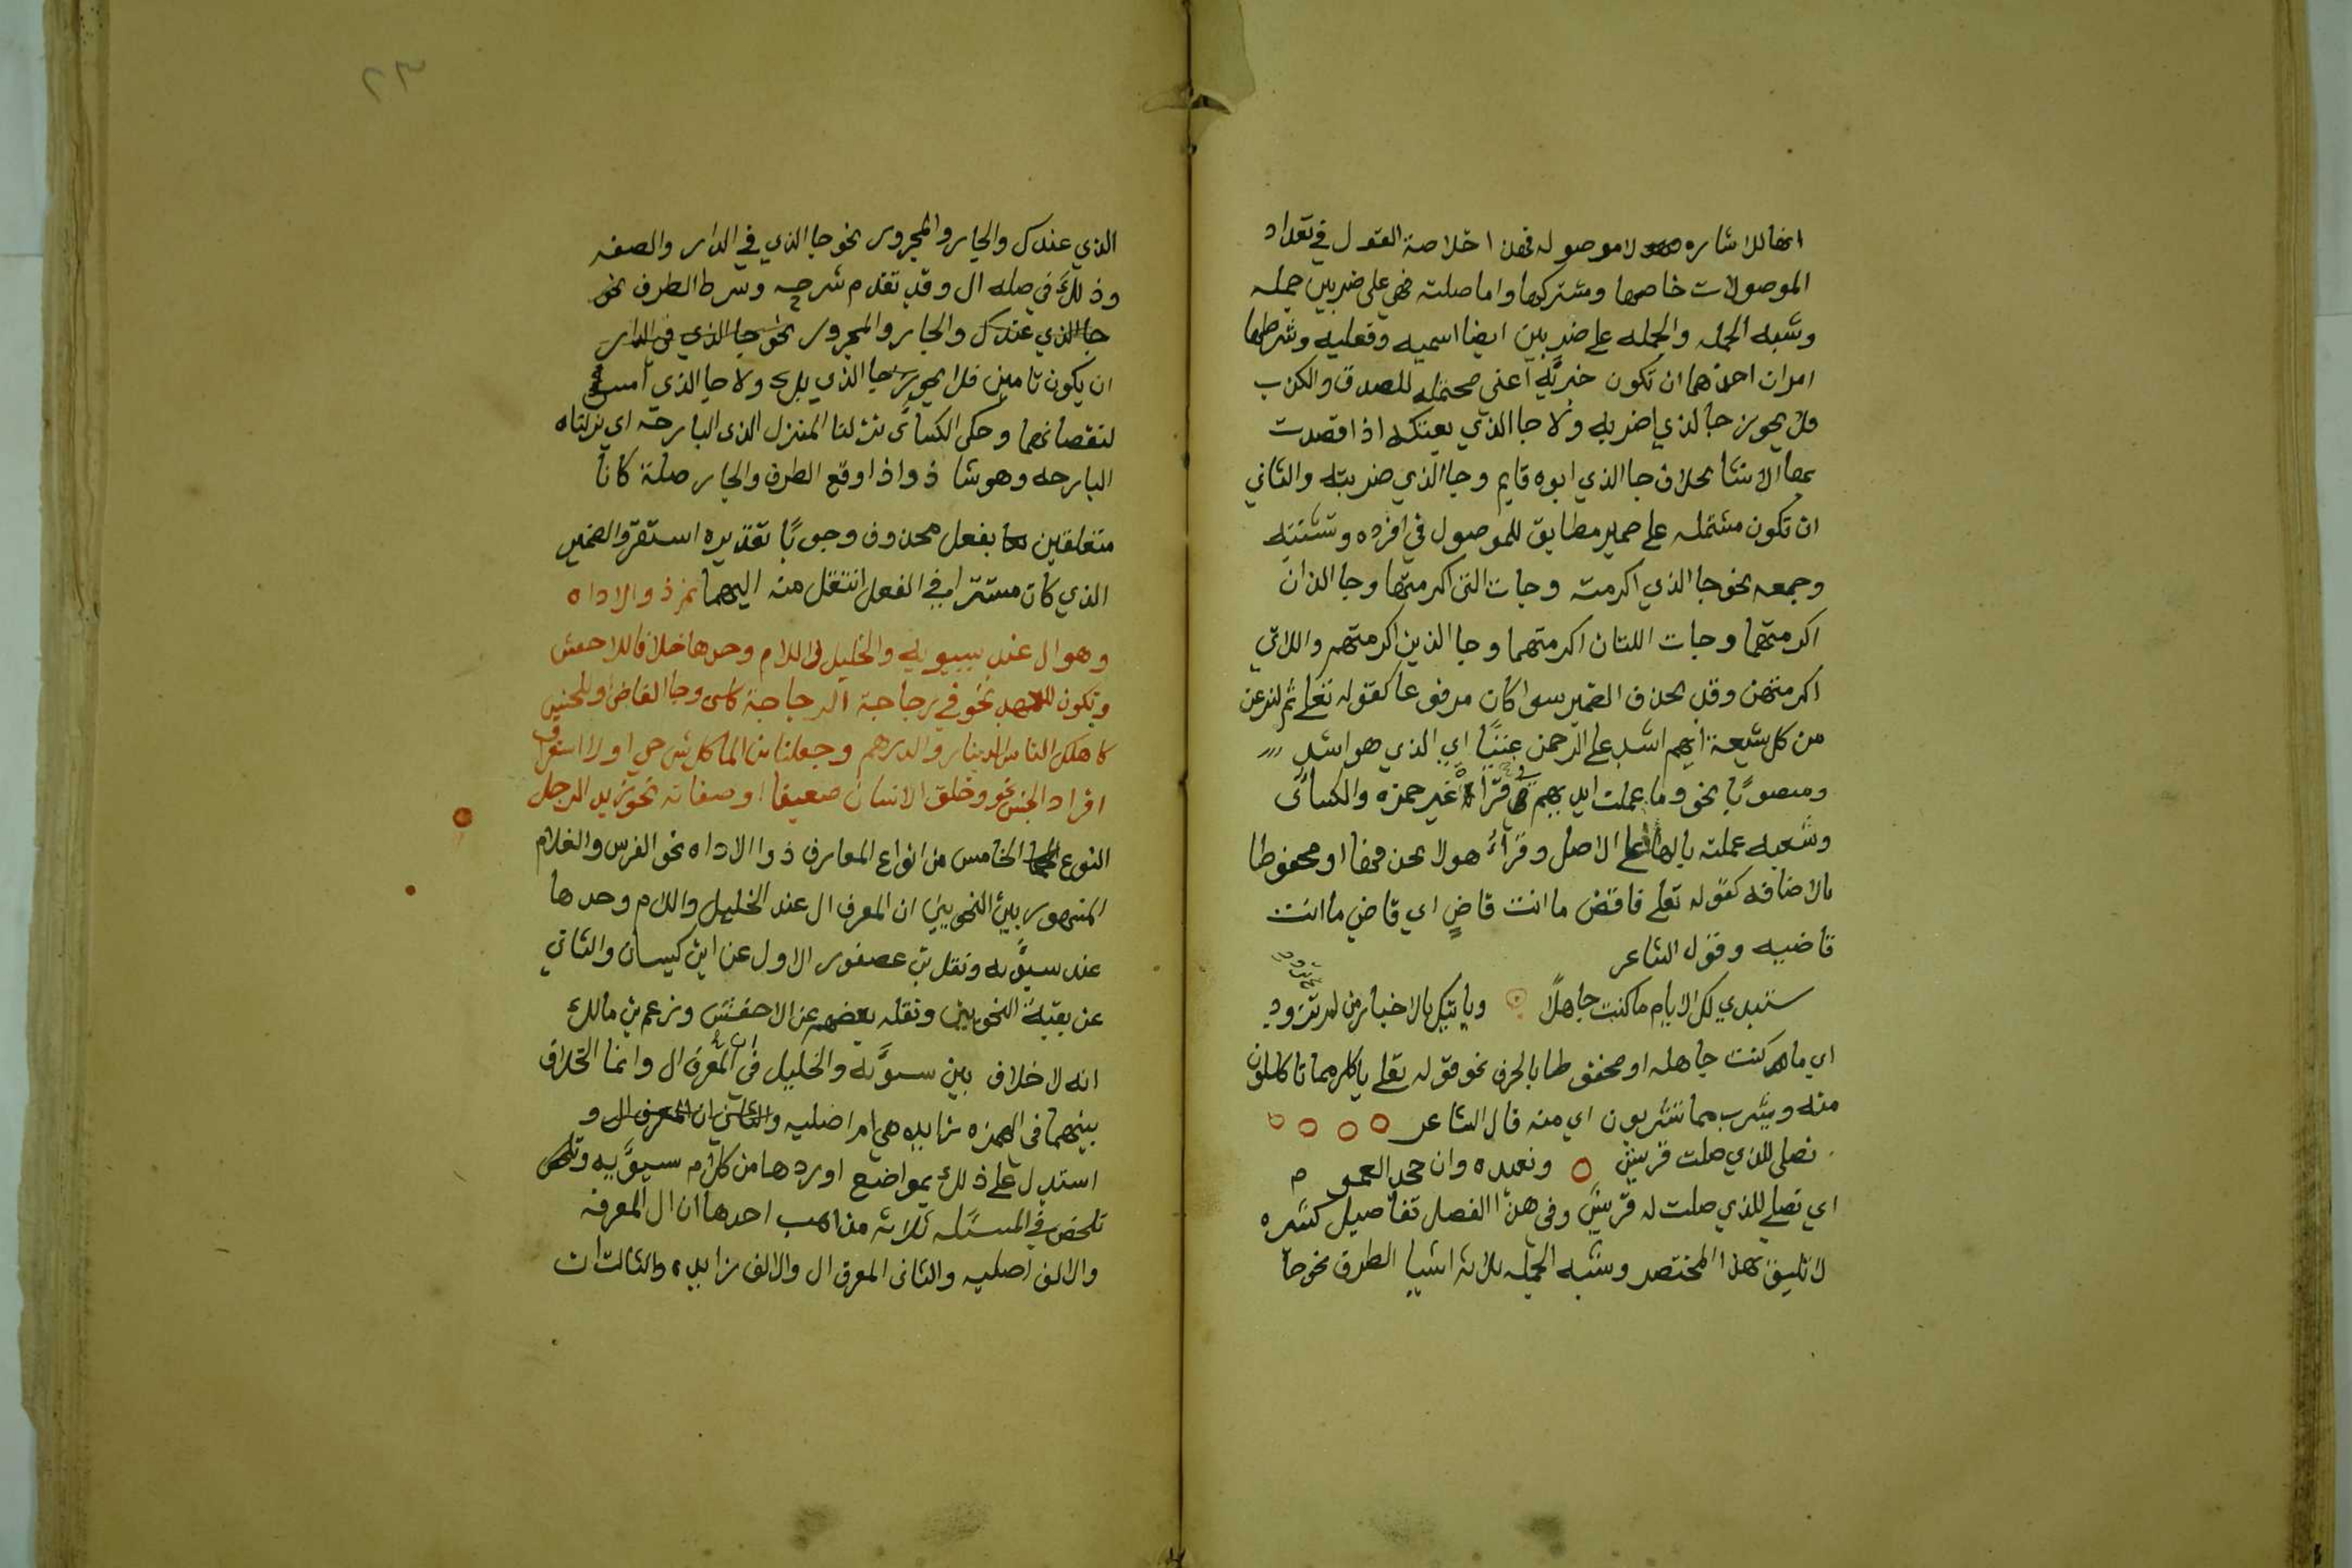 انها للاشاره لا موصوله فهذا خلاصة القول في تعداد
الموصولات خاصها ومشتركها واما صلته فهي على ضربين جمله
وشبه الجمله والجمله على ضربين ايضا اسميه وفعليه وشرطها
امران احدهما ان تكون خبريَّه اعنى محتمله للصدق والكذب
فلا يجوز جا لذي اضربه ولا جا الذي بعتكه اذا قصدت
بها الانشا بخلاف جا الذي ابوه قايم وجا الذي ضربته والثاني
ان تكون مشتمله على ضمير مطابق للموصول في افرده وتثنيته
وجمعه نحو جا الذي اكرمته وجات التى اكرمتها وجا الذان
اكرمتهما وجات اللتان اكرمتهما وجا الذين اكرمتهم واللاتي
اكرمتهن وقد يحذف الضمير سوا كان مرفوعا كقوله تعلى ثم لنزعن
من كل شيعة ايهم اشد على الرحمن عتيًا اي الذي هو اشد
ومنصوبًا نحو وما عملت ايديهم قرا غير حمزه والكسائى
وشعبه عملته بالها على الاصل وقرأ هولا بحذفها او مخفوظا
بالاضافه كقوله تعلى فاقض ما انت قاضٍ اي قاض ما انت
قاضيه وقول الشاعر
ستبدي لك الايام ما كنت جاهلاً وياتيك بالاخبار من لم تزود
اي ما كنت جاهله او مخفوظا بالحرف نحو قوله تعلى ياكل مما تاكلون
منه ويشرب مما تشربون اي منه قال الشاعر
نصلى للذي صلت قريش ونعبده وان جحد العمو م
اي نصلي للذي صلت له قريش وفي هذا الفصل تفاصيل كثيره
لا تليق بهذا المختصر وشبه الجمله ثلاثه اشيا الظرف نحو جا
٢٣
الذي عندك والجار والمجرور نحو جا الذي في الدار والصفه
وذلك في صله ال وقد تقدم شرحه وشرط الظرف نحو
جا الذي عندك والجار والمجرور نحو جا الذي في الدار
ان يكون تامين فلا يجوز جا الذي بك ولا جا الذي امس
لنقصانهما وحكى الكسائى نزلنا المنزل الذى البارحة اي نزلناه
البارحه وهو شاذ واذا وقع الظرف والجار صلة كانا
متعلقين بفعل محذوف وجوبًا تقديره استقر والضمير
الذي كان مستترا في الفعل انتقل منه اليهما ثم ذو الاداه
وهو ال عند سيبويه والخليل لا اللام وحدها خلافا للاخفش
وتكون للعهد نحو في زجاجة الزجاجة كانها وجا القاضى او للجنس
كاهلك الناس الدينار والدرهم وجعلنا من الما كل شي حي او لاستغراق
افراد الجنس نحو وخلق الانسان ضعيفا او صفاته نحو زيد الرجل
النوع الخامس من انواع المعارف ذوا الاداه نحو الفرس والغلام
المشهور بين النحويين ان المعرف ال عند الخليل واللام وحدها
عند سيبويه ونقل بن عصفور الاول عن ابن كيسان والثاني
عن بقية النحويين ونقله بعضهم عن الاخفش وزعم بن مالك
انه لا خلاف بين سيبويه والخليل في ان المعرف ال وانما الخلاف
بينهما فى الهمزه زايده هي ام اصليه والثاني ان المعرف ال و
استدل على ذلك بمواضع اوردها من كلام سيبويه
تلخص في المسئله ثلاثه مذاهب احدها ان ال المعرفه
والالف اصليه والثانى المعرف ال والالف زايده والثالث ان